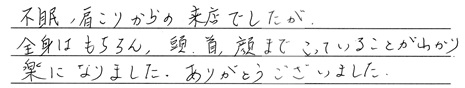 不眠、肩こりからの来店でしたが、
全身はもちろん、頭、首、顔までこっていることがわかり
楽になりました。ありがとうございました。